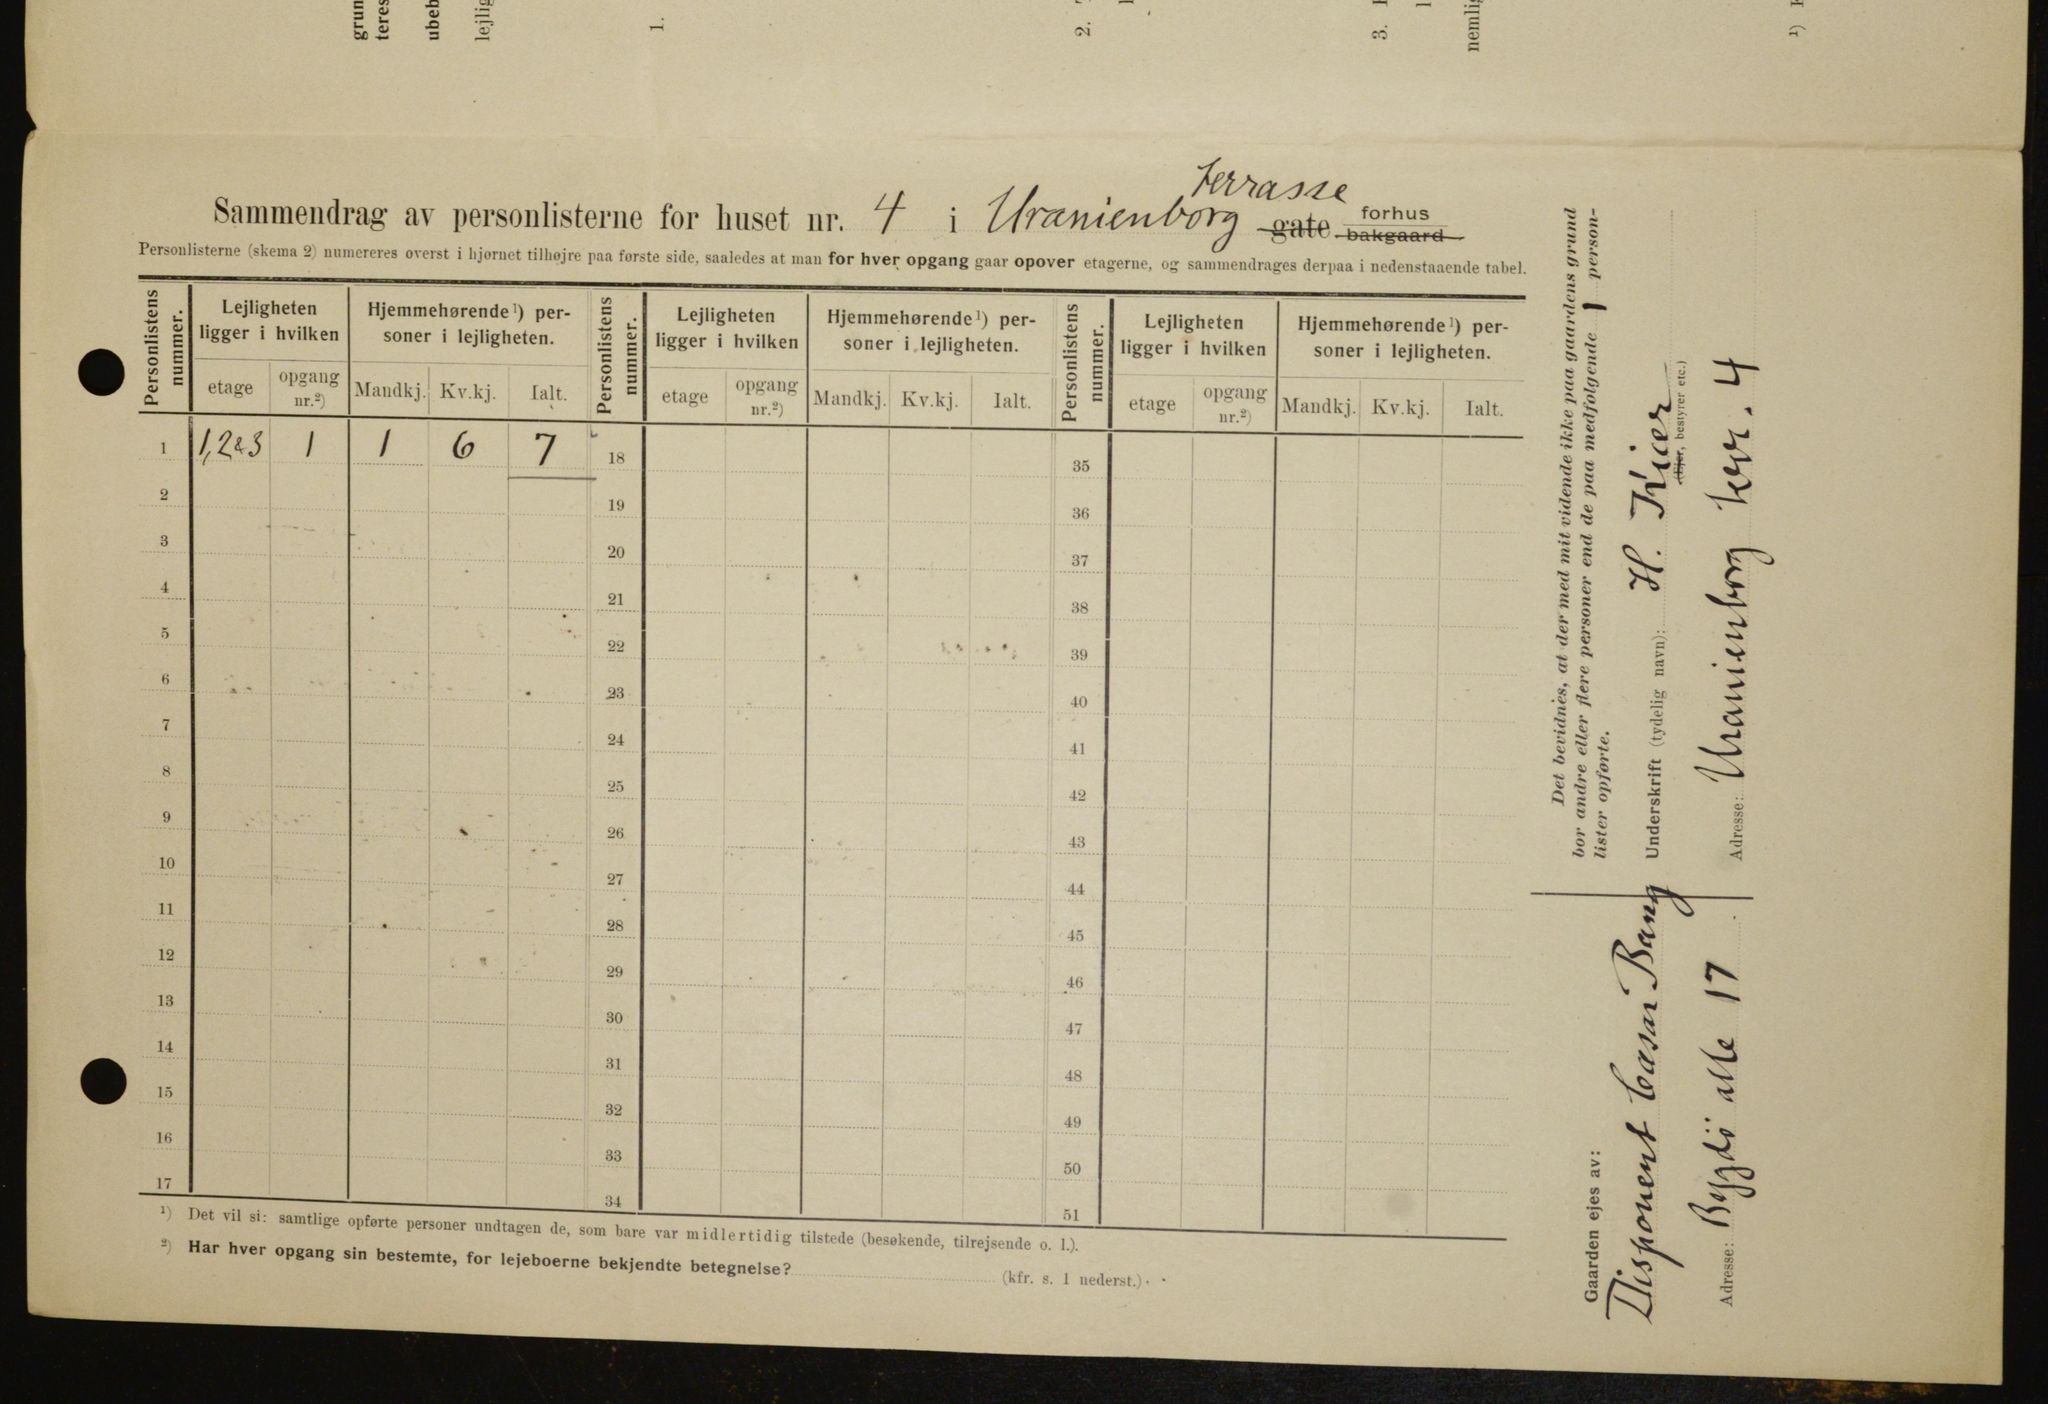 grun
teres
ubeb
lejlig
1.
2.
3.
nemlig
¹)
terrasse
Sammendrag av personlisterne for huset nr. 4 i Uranienborg gate forhus
bakgaard
Personlisterne (skema 2) numereres øverst i hjørnet tilhøjre paa første side, saaledes at man for hver opgang gaar opover etagerne, og sammendrages derpaa i nedenstaaende tabel.
Personlistens nummer. Lejligheten ligger i hvilken Hjemmehørende¹) personer i lejligheten. Personlistens nummer. Lejligheten ligger i hvilken Hjemmehørende¹) personer i lejligheten. Personlistens nummer. Lejligheten ligger i hvilken Hjemmehørende¹) personer i lejligheten.
etage opgang nr.²) Mandkj. Kv.kj. Ialt. etage opgang nr.²) Mandkj. Kv.kj. Ialt. etage opgang nr.²) Mandkj. Kv.kj. Ialt.
1 1,2&3 1 1 6 7 18 35
2 19 36
3 20 37
4 21 38
5 22 39
6 23 40
7 24 41
8 25 42
9 26 43
10 27 44
11 28 45
12 29 46
13 30 47
14 31 48
15 32 49
16 33 50
17 34 51
¹) Det vil si: samtlige opførte personer undtagen de, som bare var midlertidig tilstede (besøkende, tilrejsende o. l.).
²) Har hver opgang sin bestemte, for lejeboerne bekjendte betegnelse? (kfr. s. 1 nederst.)
Det bevidnes, at der med mit vidende ikke paa gaardens grund
bor andre eller flere personer end de paa medfølgende 1 person-
lister opførte.
Underskrift (tydelig navn): H. Kiær
(Ejer, bestyrer etc.)
Adresse: Uranienborg terr. 4
Gaarden ejes av:
Disponent Cæsar Bang
Adresse: Bygdö alle 17